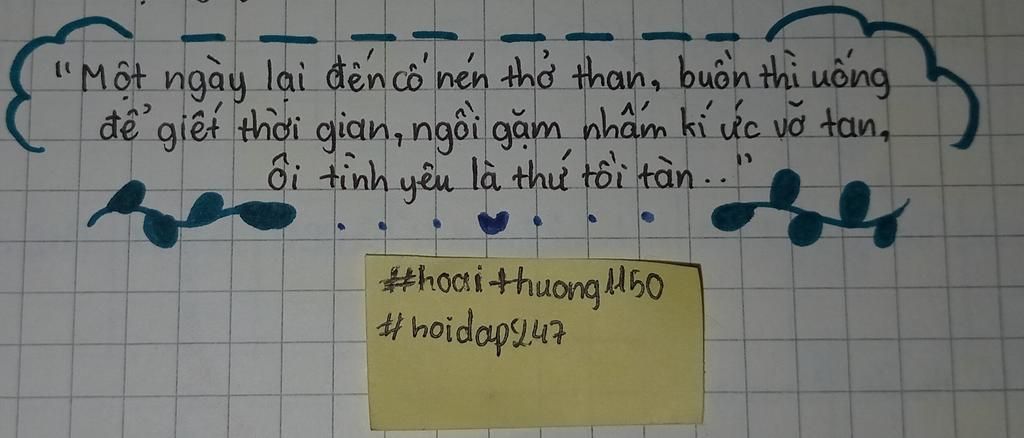 "Một ngày lại đến cố nén thở than, buồn thì uống
để giết thời gian, ngồi gặm nhấm kí ức vỡ tan,
Ôi tình yêu là thứ tồi tàn.."
#hoaithuong1150
#hoidap247